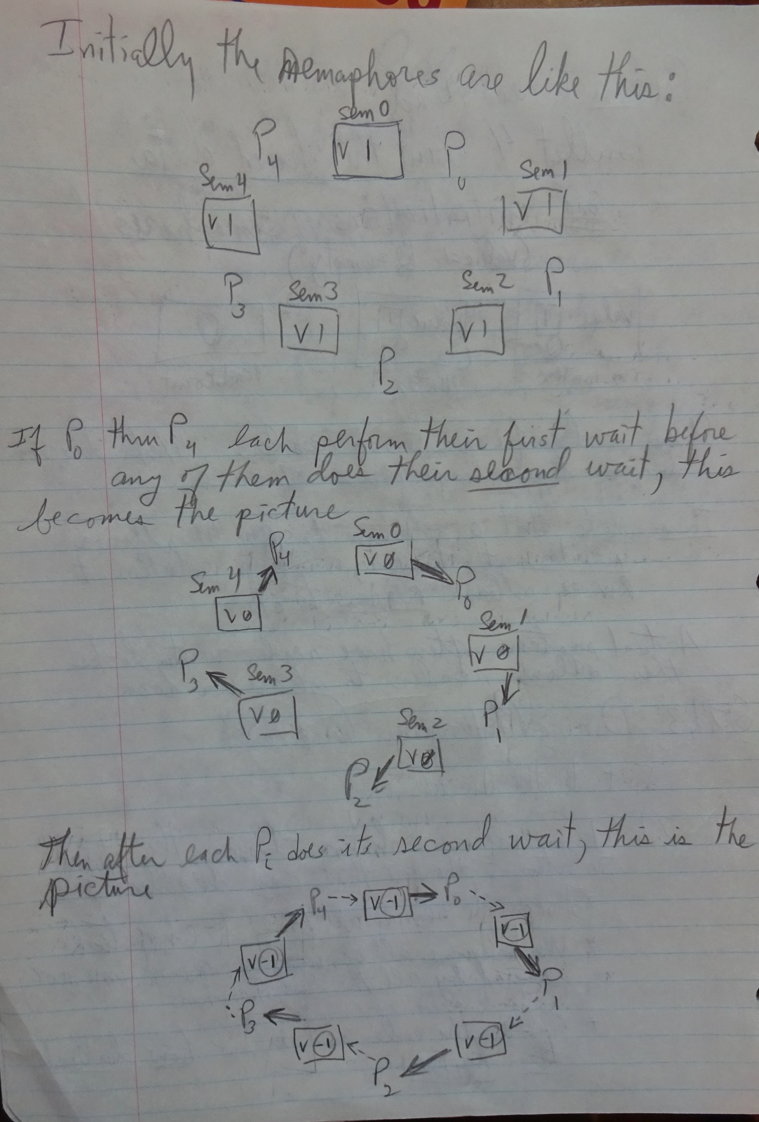 Initially the semaphores are like this:
Sem0
P4 V 1 P0
Sem4 Sem1
V 1 V 1
P3 Sem3 Sem2 P1
V 1 V 1
P2
If P0 thru P4 each perform their first wait before
any of them does their second wait, this
becomes the picture
Sem0
P4 V 0
Sem4 P0
V 0 Sem1
V 0
P3 Sem3
V 0 P1
Sem2
V 0
P2
Then after each Pi does its second wait, this is the
picture
P4 V -1 P0
V -1
V -1
P1
P3
V -1 V -1
P2